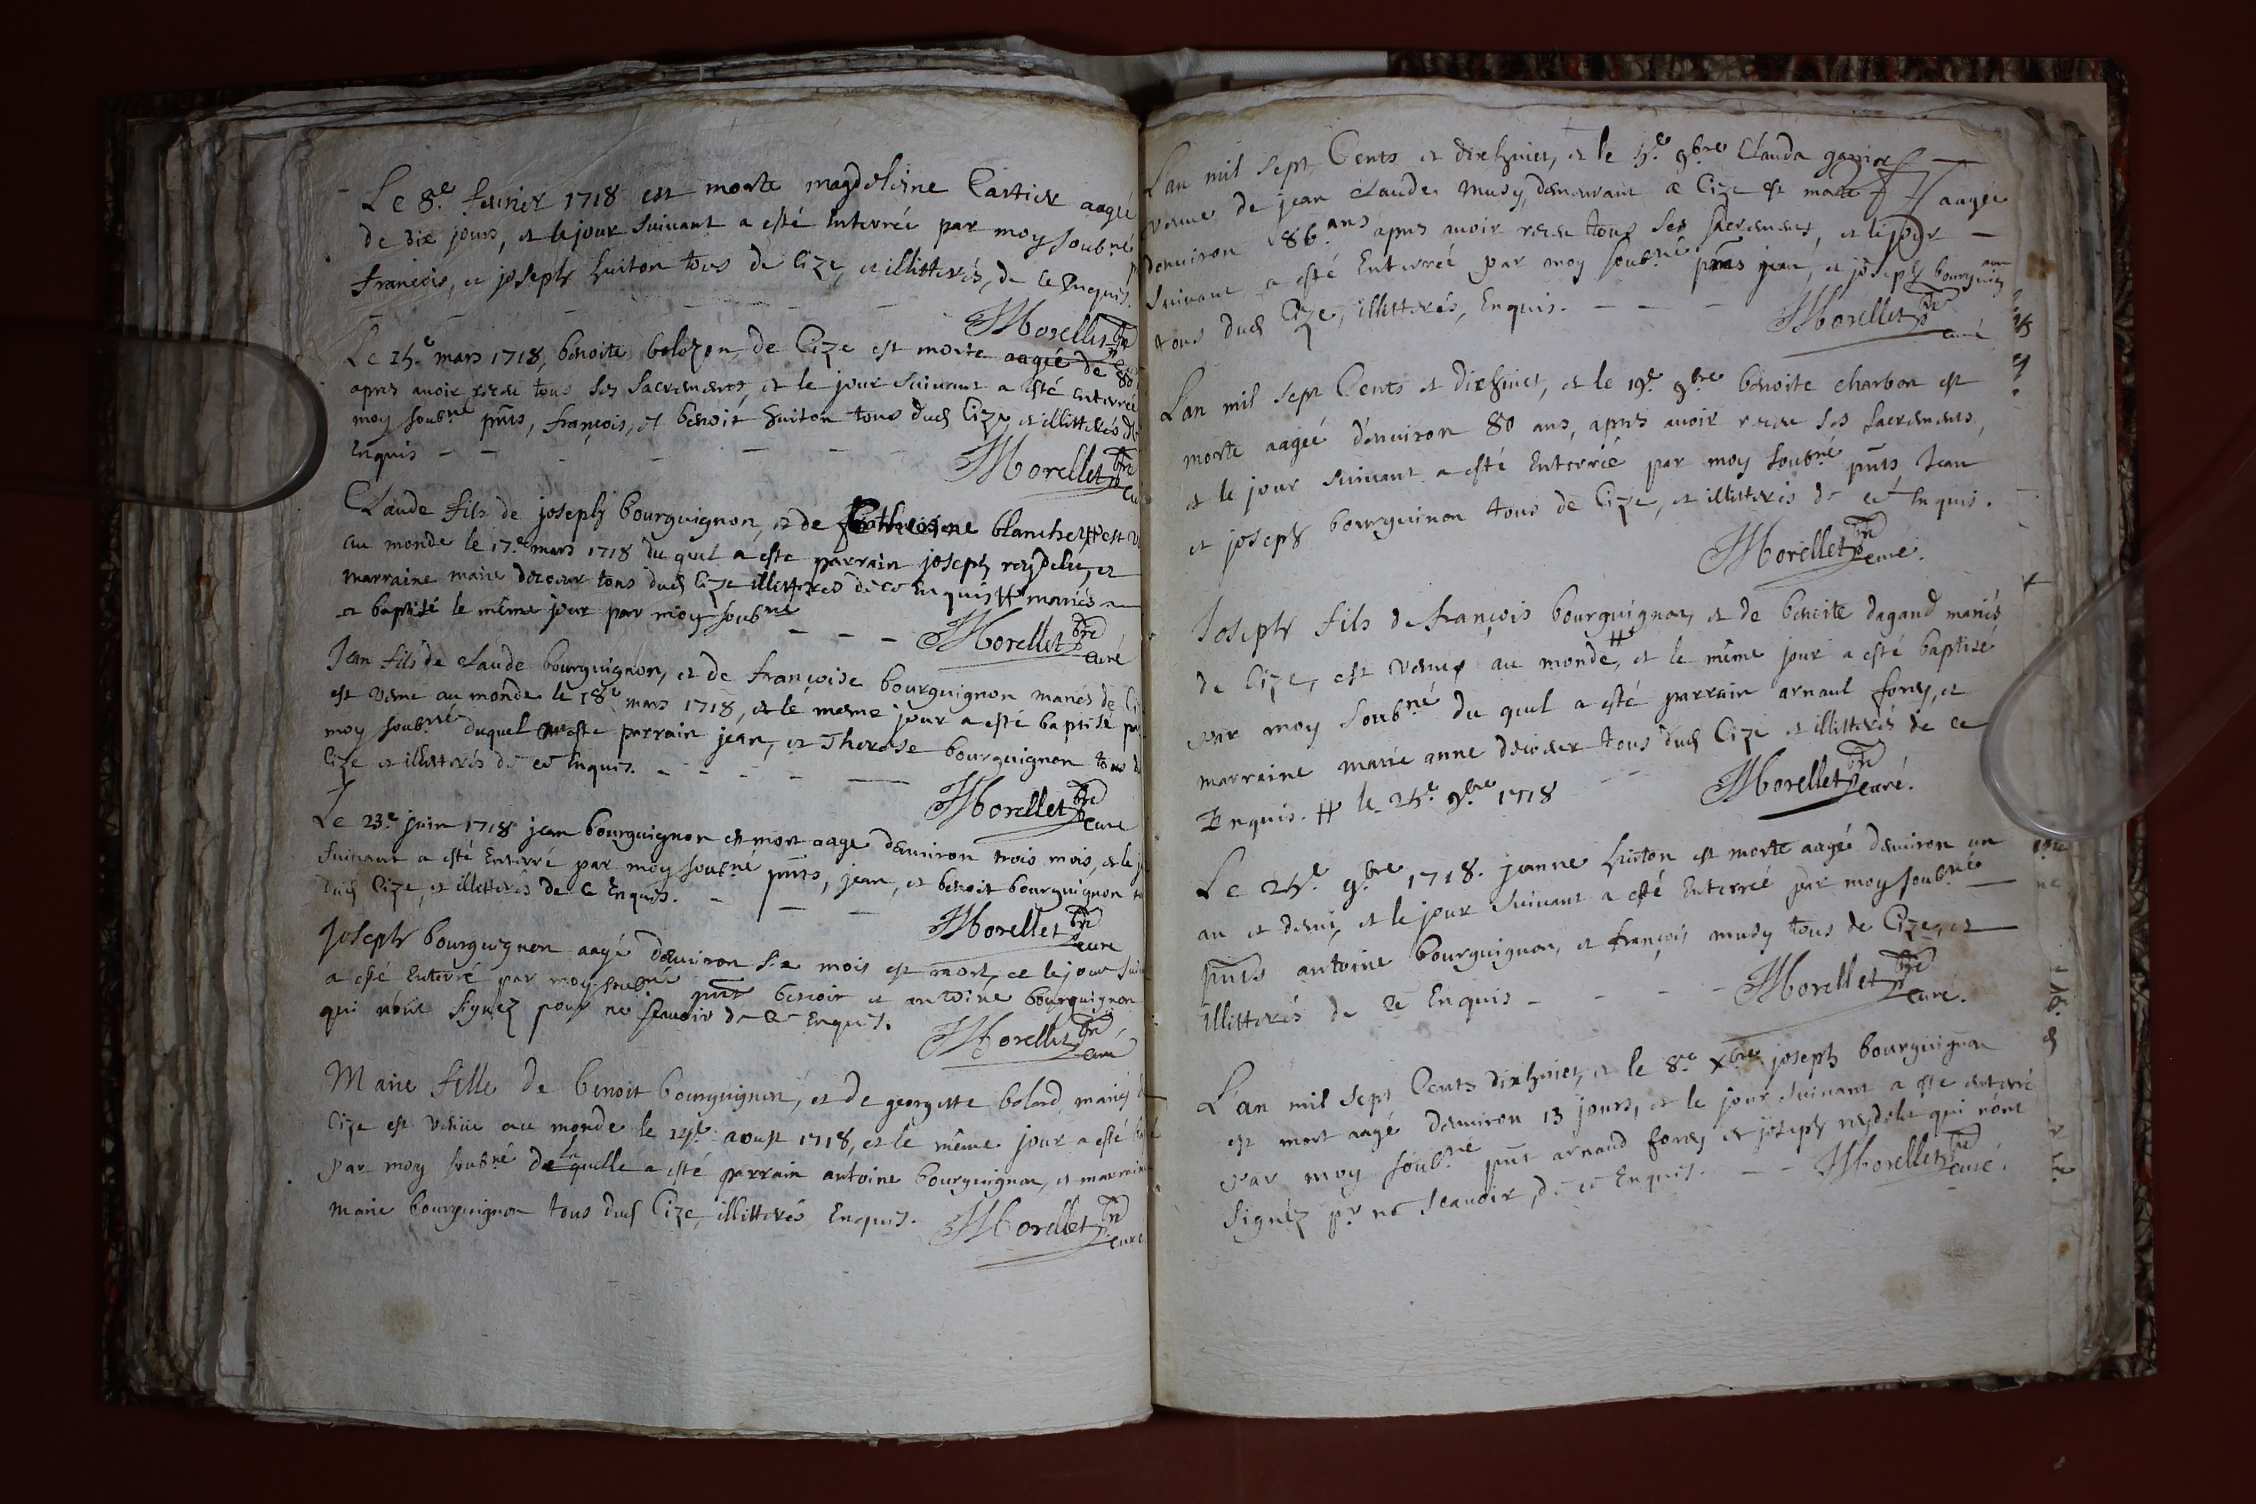 Le 8.e feurier 1718 est morte magdeleine Cartier aagée
de dix jours, et le jour suiuant a esté enterrée par moy soub.né
françois, et joseph huiton tous de Cize, et illitterés, de ce Enquis.
Morellet pbre
Le 25.e mars 1718, benoite bolozon, de Cize est morte aagée de 80
apres auoir receu tous ses sacremens, et le jour suiuant a esté enterrée
moy soub.né pñts, françois, et benoit huiton tous dud Cize et illitterés de
Enquis
Morellet pbre
Claude fils de joseph bourguignon, et de Catherine blanchet # est
au monde le 17.e mars 1718 du quel a esté parrain joseph reydelet, et
marraine marie decoeur tous dud Cize illitterés de ce Enquis # mariés
et baptisé le même jour par moy soub.né
Morellet pbre
curé
Jean fils de claude bourguignon, et de françoise bourguignon mariés de
est venu au monde le 18.e mars 1718, et le mesme jour a esté baptisé
moy soub.né duquel a esté parrain jean, et Therese bourguignon tous
Cize et illitterés de ce Enquis.
Morellet pbre
curé
Le 23.e juin 1718 jean bourguignon est mort aagé denuiron trois mois, et le
suiuant a esté Enterré par moy soub.né pñts, jean, et benoit bourguignon
dud Cize, et illitterés de ce Enquis.
Morellet pbre
curé
Joseph bourguignon aagé denuiron six mois est mort, et le jour
a esté Enterré par moy soub.né pñt benoit et antoine bourguignon
qui n'ont signez pour ne sçauoir de ce Enquis.
Morellet pbre
curé
Marie fille de benoit bourguignon, et de georgette bolard mariés
Cize est venue au monde le aoust 1718, et le même jour a esté
par moy soub.né de la quelle a esté parrain antoine bourguignon, et marraine
marie bourguignon tous dud Cize, illitterés Enquis.
Morellet pbre
curé
Lan mil sept Cents et dixhuict, et le 9bre Clauda
veuue de jean claude musy, demeurant a Cize est morte aagée
denuiron 86 ans apres auoir receu tous ses sacremens, et le jour
suiuant a esté Enterrée par moy soub.né pñts jean, et joseph bourguignon
tous dud Cize, illitterés, Enquis.
Morellet pbre
curé
Lan mil sept Cents et dixhuict, et le 19.e 9bre benoite charbon est
morte aagée d'enuiron 80 ans, apres auoir receu ses sacremens,
et le jour suiuant a esté Enterrée par moy soub.né pñts Jean
et joseph bourguinon tous de Cize, et illitterés de ce Enquis.
Morellet pbre
curé.
Joseph fils de françois bourguignon, et de benoite dagand mariés
de Cize, est venu au monde #, et le même jour a esté baptisé
par moy soub.né du quel a esté parrain arnaud forey, et
marraine marie anne decoeur tous dud Cize et illitterés de ce
Enquis. # le 25.e 9bre 1718
Morellet pbre
curé.
Le 25.e 9bre 1718. jeanne huiton est morte aagé denuiron un
an et demi, et le jour suiuant a esté Enterrée par moy soub.né
pñts antoine bourguignon, et françois musy tous de Cize, et
illitterés de ce Enquis
Morellet pbre
curé.
L'an mil sept Cents dixhuict, et le 8.e Xbre joseph bourguignon
est mort aagé denuiron 13 jours, et le jour suiuant a esté enterré
par moy soub.né pñt arnaud forey et joseph reydelet qui n'ont
signéz pr ne sçauoir, de ce Enquis.
Morellet pbre
curé.